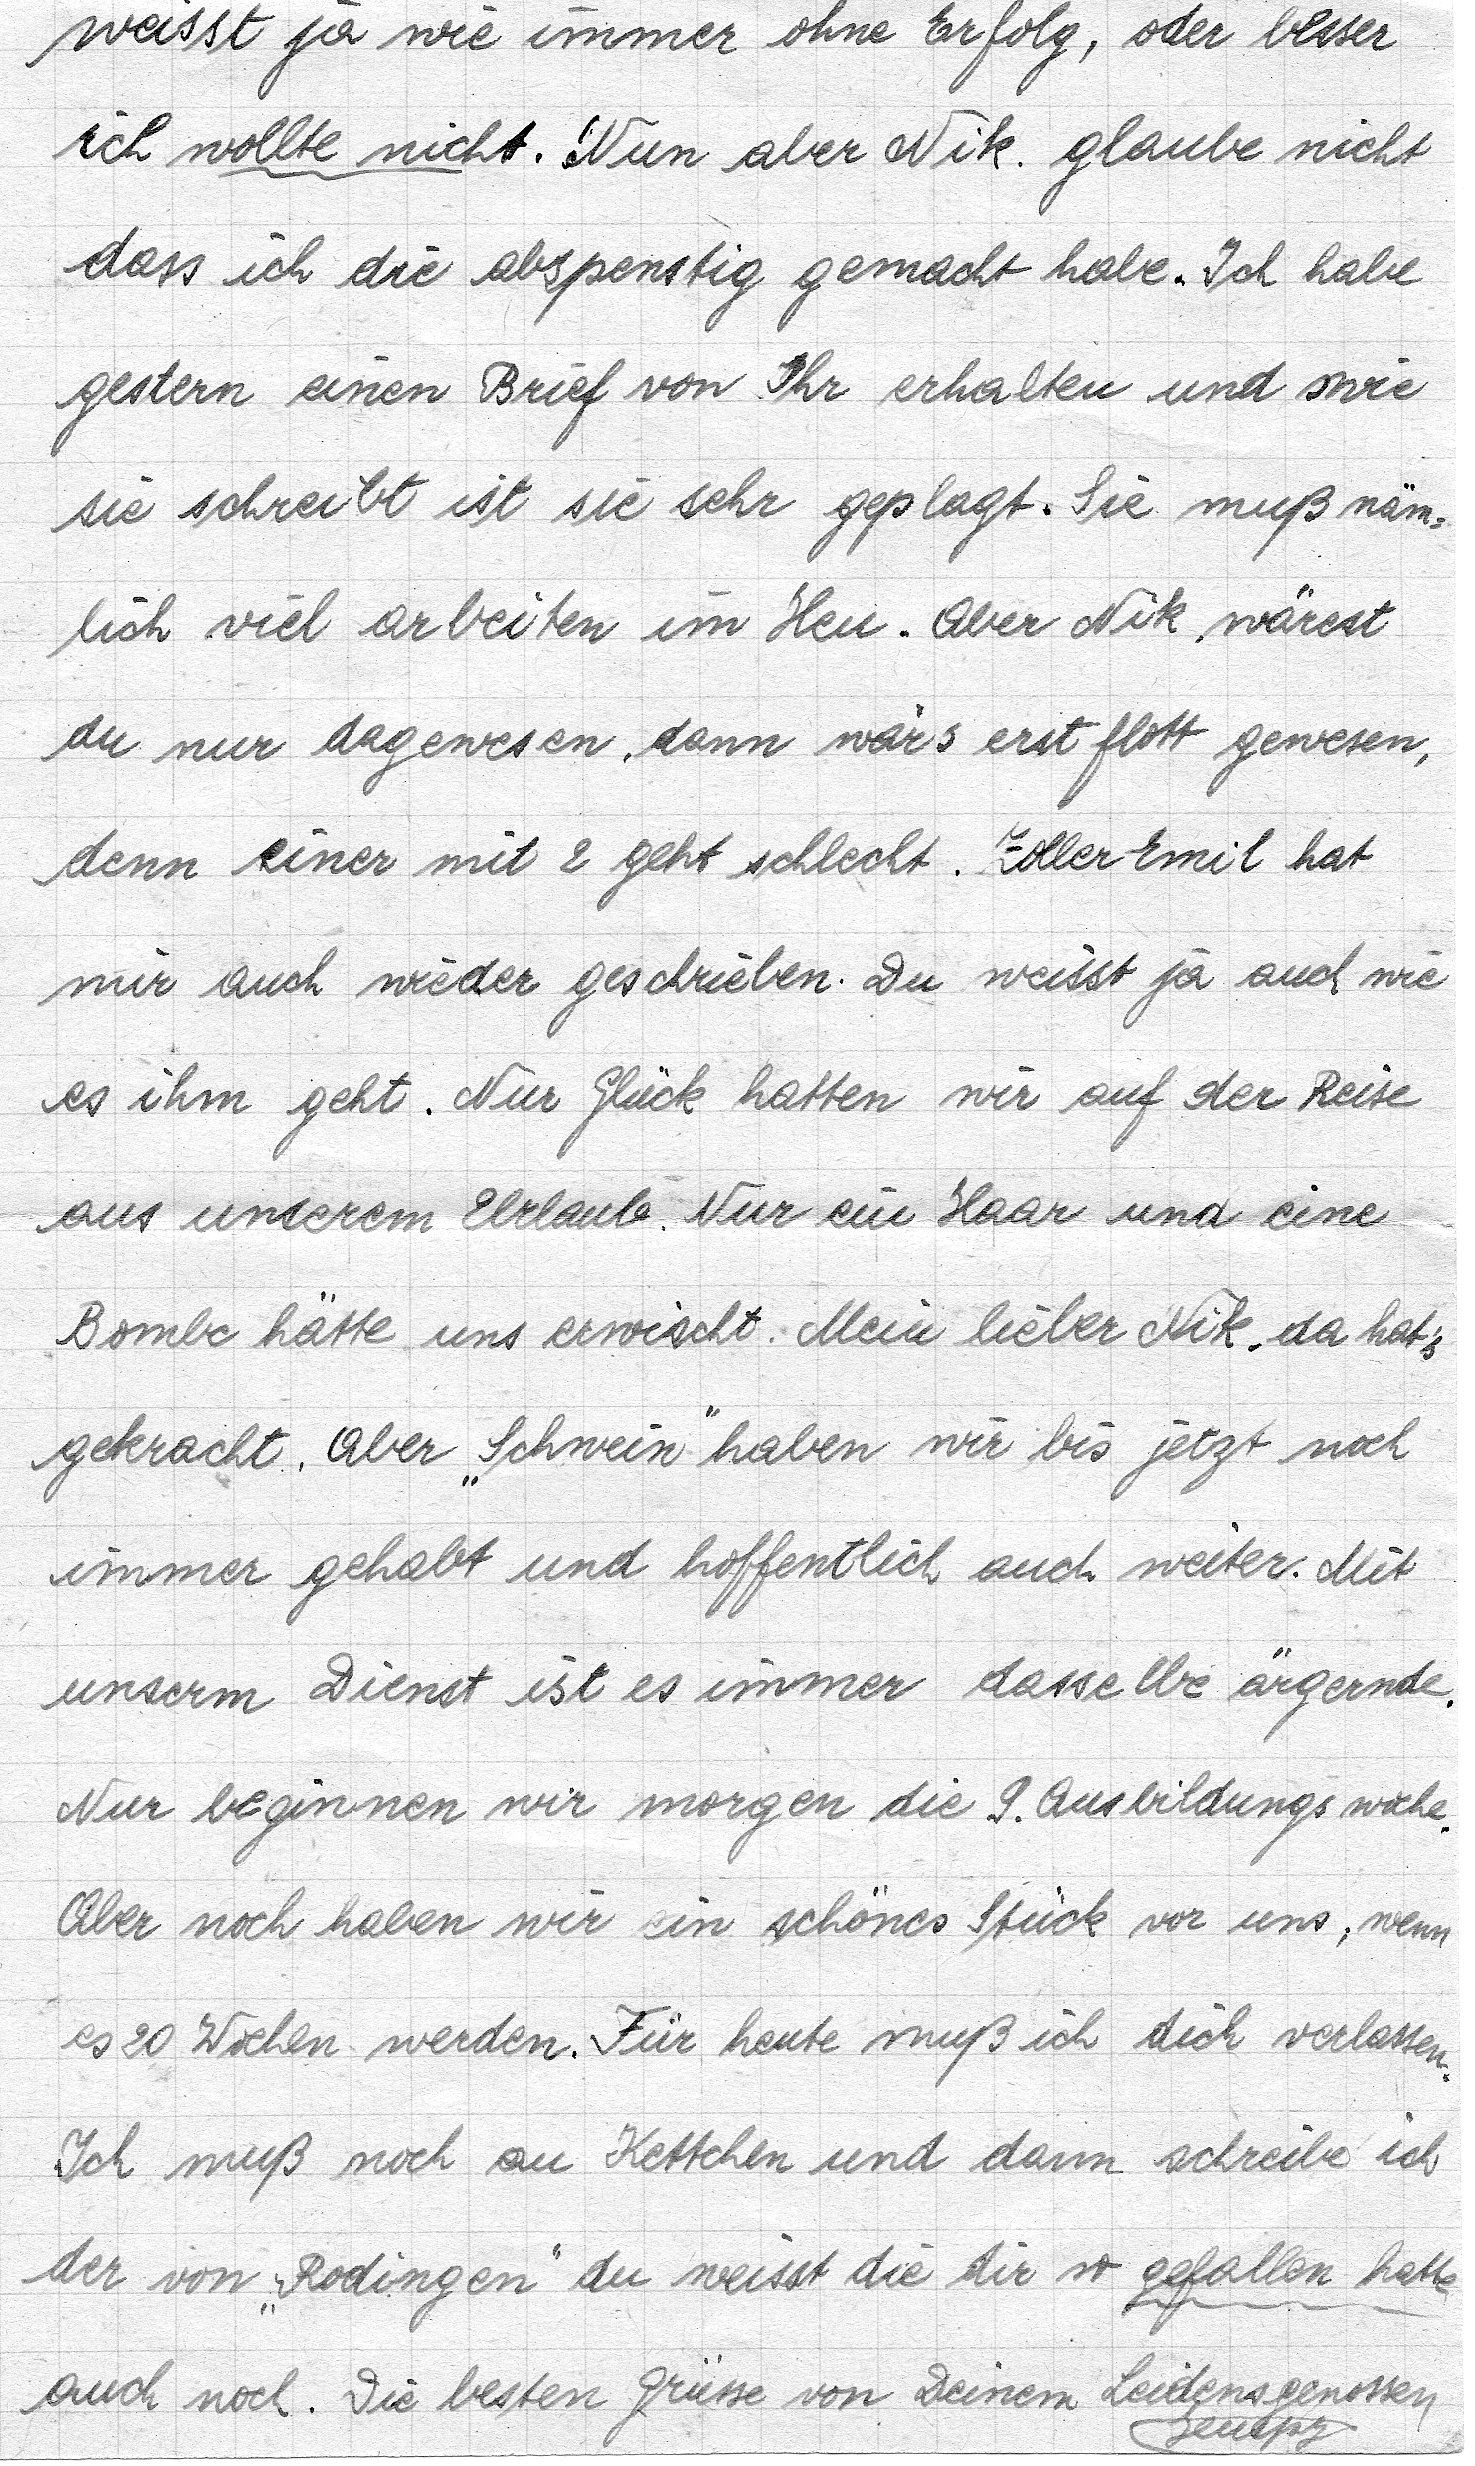 weisst ja wie immer ohne Erfolg, oder besser
ich wollte nicht. Nun aber Nik. glaube nicht
dass ich die abspenstig gemacht habe. Ich habe
gestern einen Brief von Ihr erhalten und wie
sie schreibt ist sie sehr geplagt. Sie muß näm=
lich viel arbeiten im Heu. Aber Nik, wärest
du nur dagewesen, dann wär's erst flott gewesen,
denn einer mit 2 geht schlecht. Zoller-Emil hat
mir auch wieder geschrieben. Du weisst ja auch wie
es ihm geht. Nur Glück hatten wir auf der Reise
aus unserem Urlaub. Nur ein Haar und eine
Bombe hätte uns erwischt. Mein lieber Nik, da hat's
gekracht. Aber „Schwein" haben wir bis jetzt noch
immer gehabt und hoffentlich auch weiter. Mit
unserm Dienst ist es immer dasselbe ärgernde.
Nur beginnen wir morgen die 9. Ausbildungswoche.
Aber noch haben wir ein schönes Stück vor uns, wenn
es 20 Wochen werden. Für heute muß ich dich verlassen.
Ich muß noch an Kettchen und dann schreibe ich
der von „Rodingen" du weisst die dir so gefallen hatte
auch noch. Die besten Grüsse von Deinem Leidensgenossen